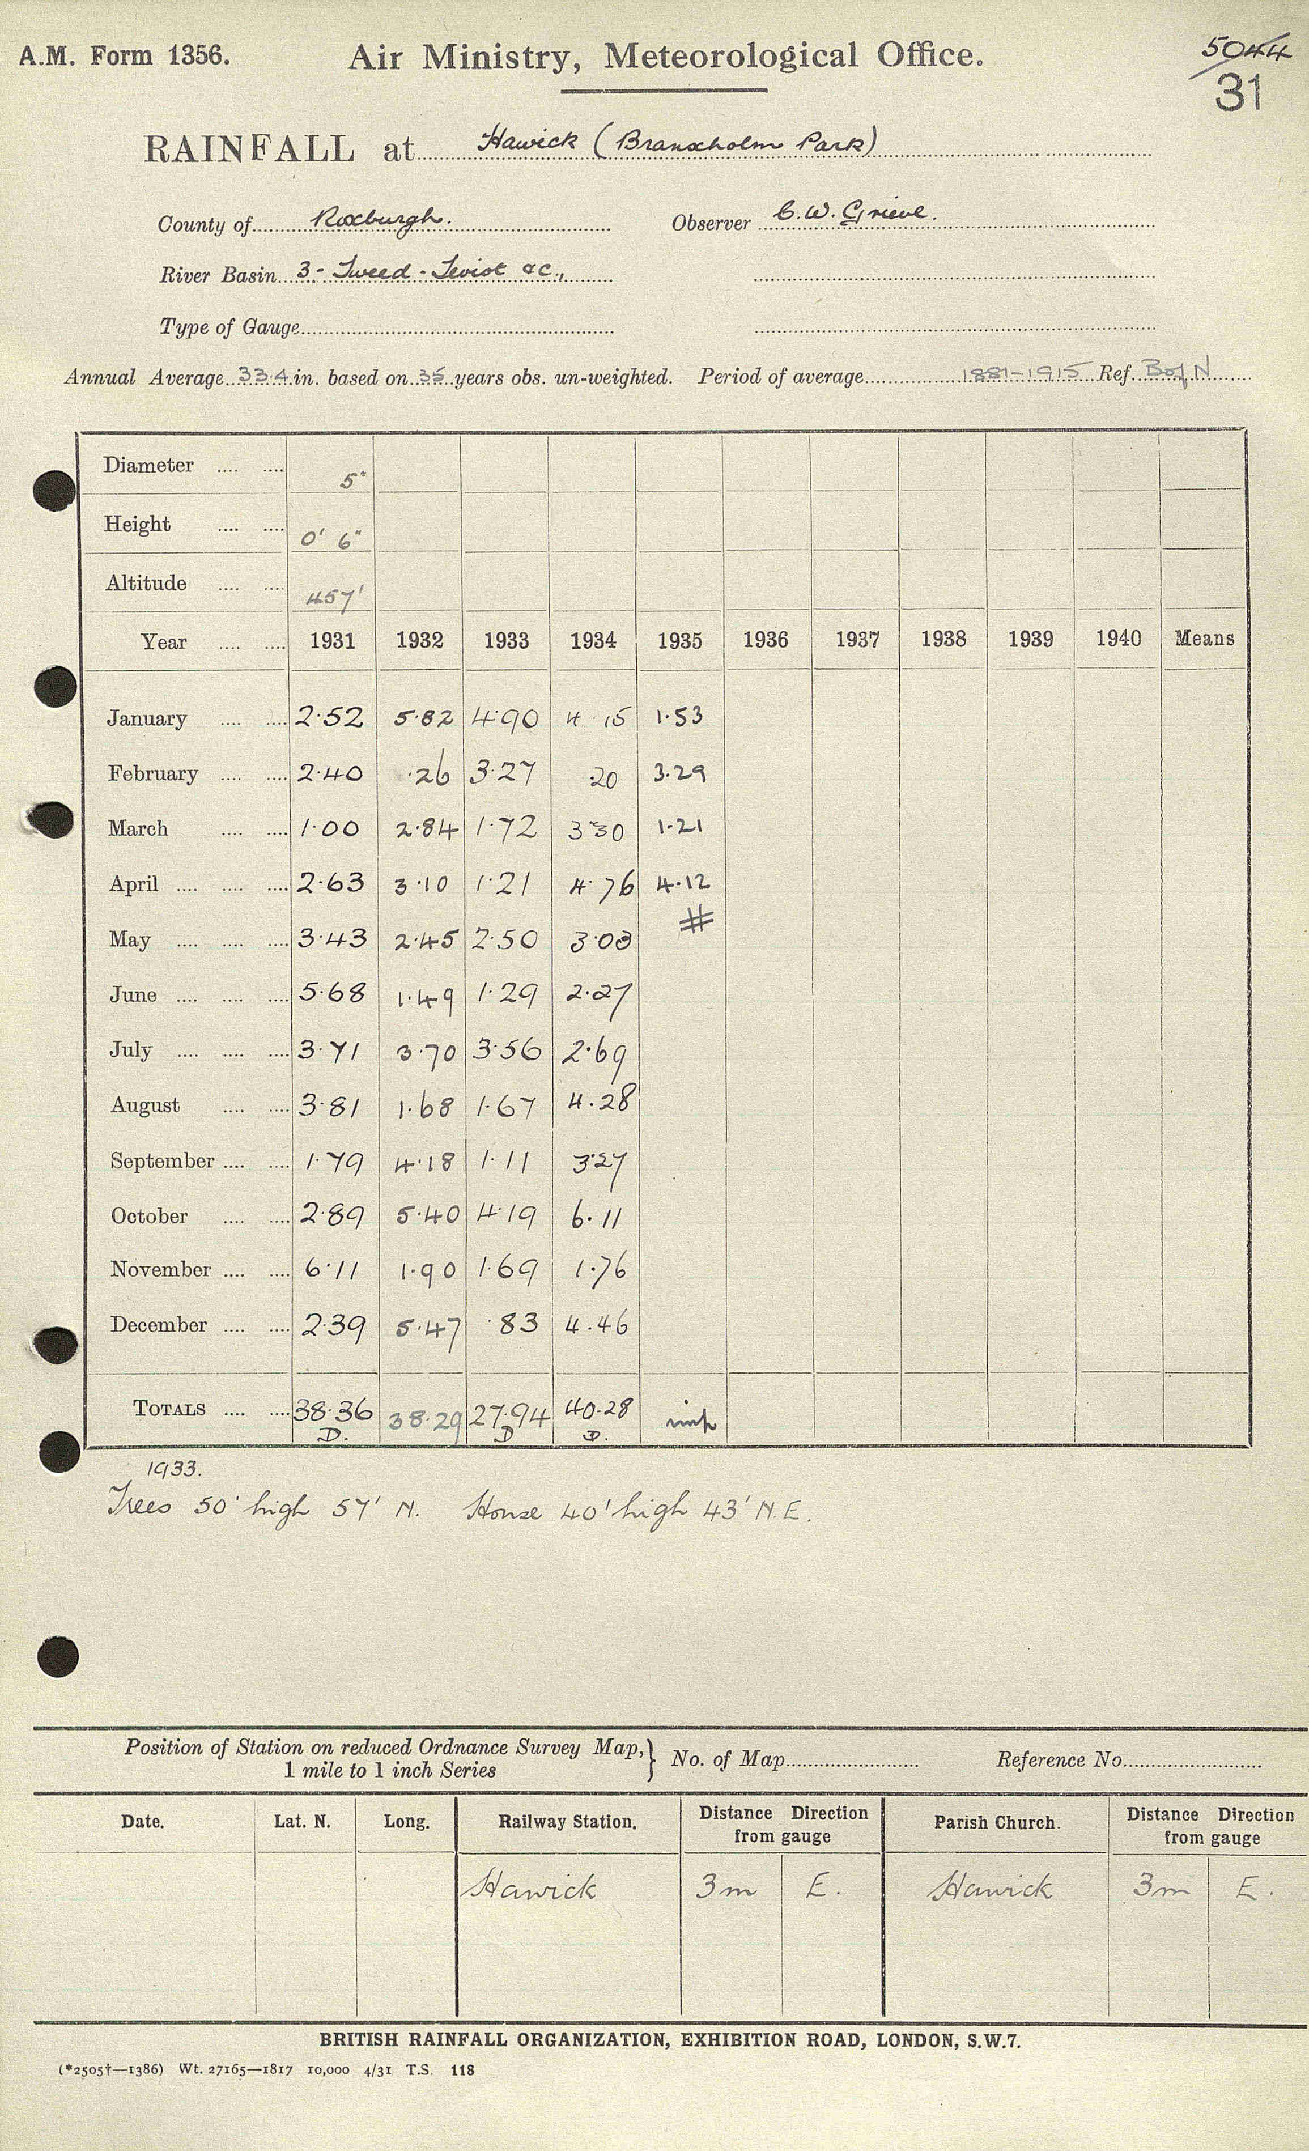 A.M. Form 1356. Air Ministry, Meteorological Office. 5044
31
RAINFALL at Hawick (Branxholm Park)
County of Roxburgh. Observer C.W. Grieve.
River Basin 3 - Tweed - Teviot &c.,
Type of Gauge
Annual Average 33.4 in. based on 35 years obs. un-weighted. Period of average 1881-1915 Ref. B of N
Diameter 5"
Height 0' 6"
Altitude 457'
Year 1931 1932 1933 1934 1935 1936 1937 1938 1939 1940 Means
January 2.52 5.82 4.90 4 15 1.53
February 2.40 .26 3.27 .20 3.29
March 1.00 2.84 1.72 3.30 1.21
April 2.63 3.10 1.21 4.76 4.12
May 3.43 2.45 2.50 3.03 #
June 5.68 1.49 1.29 2.27
July 3.71 3.70 3.56 2.69
August 3.81 1.68 1.67 4.28
September 1.79 4.18 1.11 3.27
October 2.89 5.40 4.19 6.11
November 6.11 1.90 1.69 1.76
December 2.39 5.47 .83 4.46
TOTALS 38.36 38.29 27.94 40.28 imp
D. D D.
1933.
Trees 50' high 57' N. House 40' high 43' N.E.
Position of Station on reduced Ordnance Survey Map, } No. of Map Reference No.
1 mile to 1 inch Series
Date. Lat. N. Long. Railway Station. Distance Direction from gauge Parish Church. Distance Direction from gauge
Hawick 3m E. Hawick 3m E.
BRITISH RAINFALL ORGANIZATION, EXHIBITION ROAD, LONDON, S.W.7.
(*2505†—1386) Wt. 27165—1817 10,000 4/31 T.S. 118